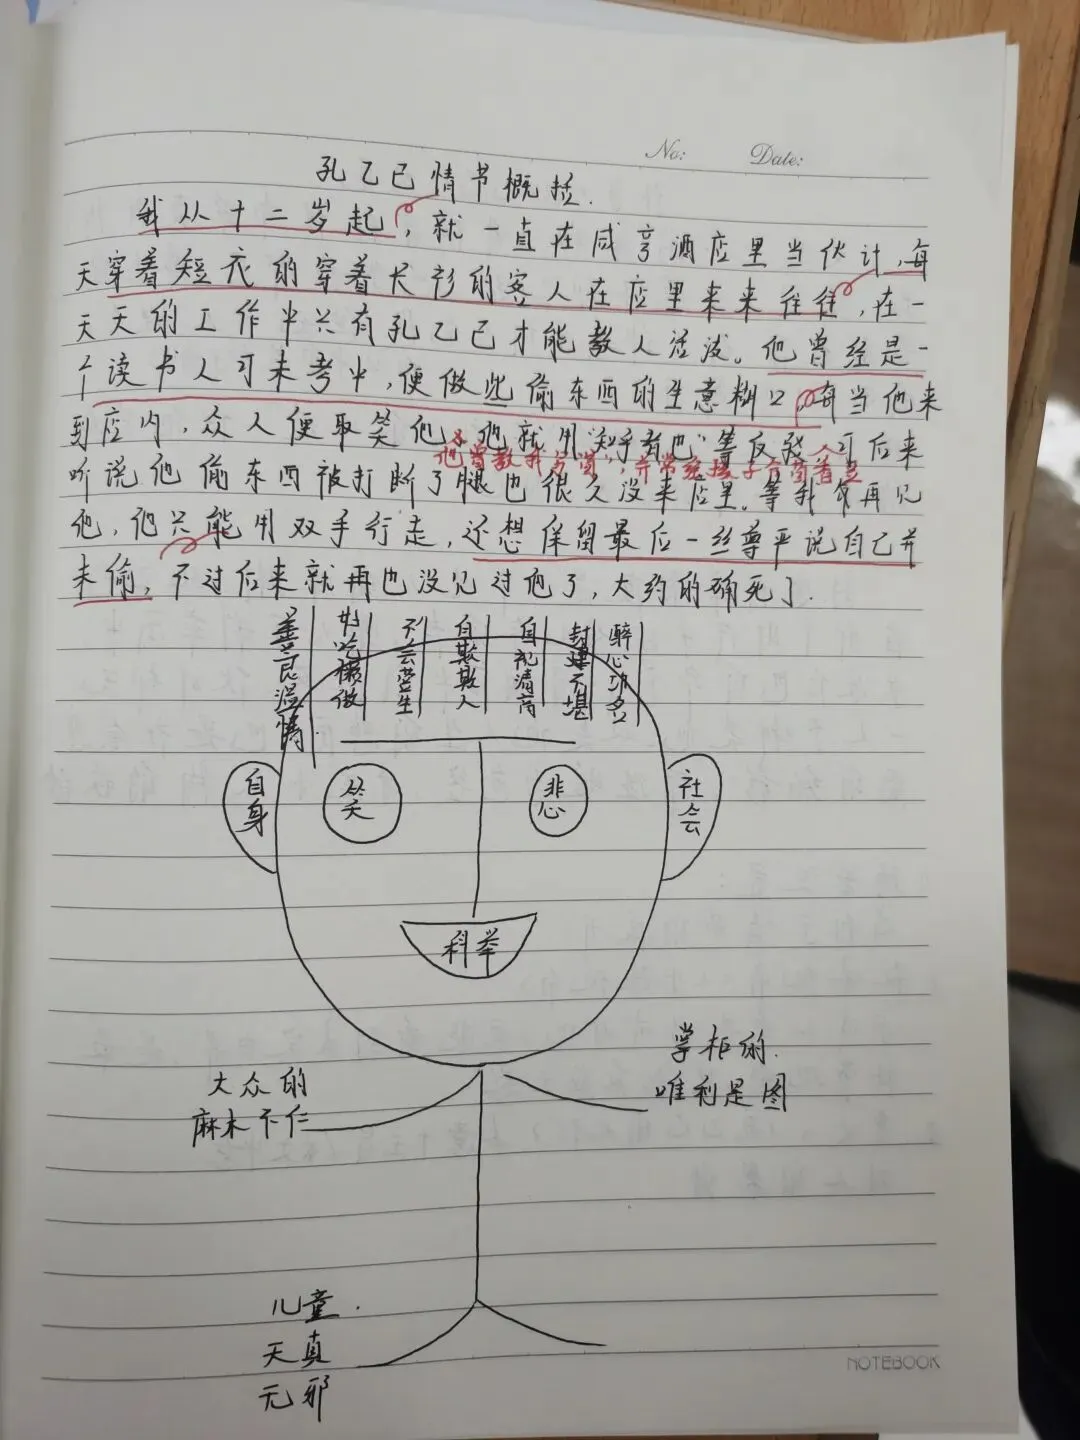 No:   Date:
孔乙己情节概括.
我从十二岁起,就一直在咸亨酒店里当伙计,每
天穿着短衣的穿着长衫的客人在店里来来往往,在一
天天的工作中只有孔乙己才能教人活泼。他曾经是一
个读书人可未考中,便做些偷东西的生意糊口,每当他来
到店内,众人便取笑他,他就用"知乎者也"等反驳,可后来
他曾教我写"茴",并常
听说他偷东西被打断了腿也很久没来店里。等到再见
他,他只能用双手行走,还想保留最后一丝尊严说自己并
未偷,不过后来就再也没见过他了,大约的确死了.
善良温情.
好吃懒做
不会营生
自欺欺人
自视清高
封建不堪
醉心功名
自身
笑
悲
社会
科举
大众的
麻木不仁
掌柜的.
唯利是图
儿童.
天真
无邪
NOTEBOOK